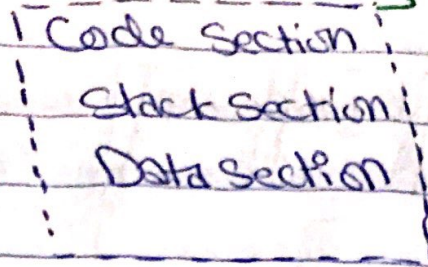 Code Section
Stack Section
Data Section